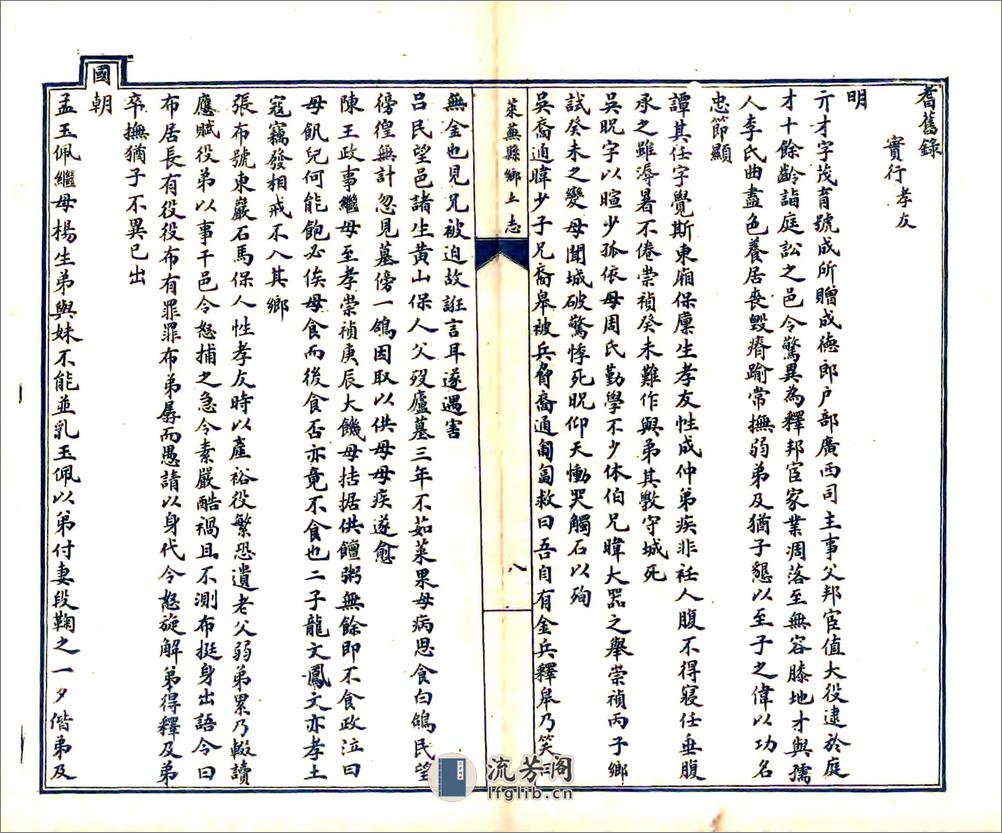 耆舊錄
實行孝友
明
亓才字茂育號成所贈成德郎户部廣西司主事父邦宦值大役逮於庭
才十餘齡詣庭訟之邑令驚異為釋邦宦家業凋落至無容膝地才與孺
人李氏曲盡色養居喪毀瘠踰常撫弱弟及猶子懇以至子之偉以功名
忠節顯
譚其任字覺斯東廂保廩生孝友性成仲弟疾非衽人腹不得寢任垂腹
承之雖溽暑不倦崇禎癸未難作與弟其斆守城死
吳昵字以暄少孤依母周氏勤學不少休伯兄暐大器之舉崇禎丙子鄉
試癸未之變母聞城破驚悸死昵仰天慟哭觸石以殉
吳裔通暐少子兄裔皋被兵脅裔通匍匐救曰吾自有金兵釋皋乃笑曰
萊蕪縣鄉土志
八
無金也見兄被迫故誑言耳遂遇害
呂民望邑諸生黃山保人父歿廬墓三年不茹菜果母病思食白鴿民望
徬徨無計忽見墓傍一鴿因取以供母母疾遂愈
陳王政事繼母至孝崇禎庚辰大饑母拮据供饘粥無餘即不食政泣曰
母飢兒何能飽必俟母食而後食否亦竟不食也二子龍文鳳文亦孝土
寇竊發相戒不入其鄉
張布號東嚴石馬保人性孝友時以產裕役繁恐遺老父弱弟累乃輟讀
應賦役弟以事干邑令怒捕之急令素嚴酷禍且不測布挺身出語令曰
布居長有役役布有罪罪布弟孱而愚請以身代令怒旋解弟得釋及弟
卒撫猶子不異已出
國朝
孟玉佩繼母楊生弟與妹不能並乳玉佩以弟付妻段鞠之一夕偕弟及
流芳閣
lfglib.cn